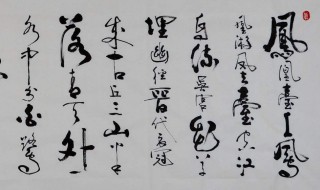 鳳凰臺上鳳
凰遊鳳去臺空江
自流吳宮花草
埋幽徑晉代衣冠
成古丘三山半
落青天外
水中分白鷺